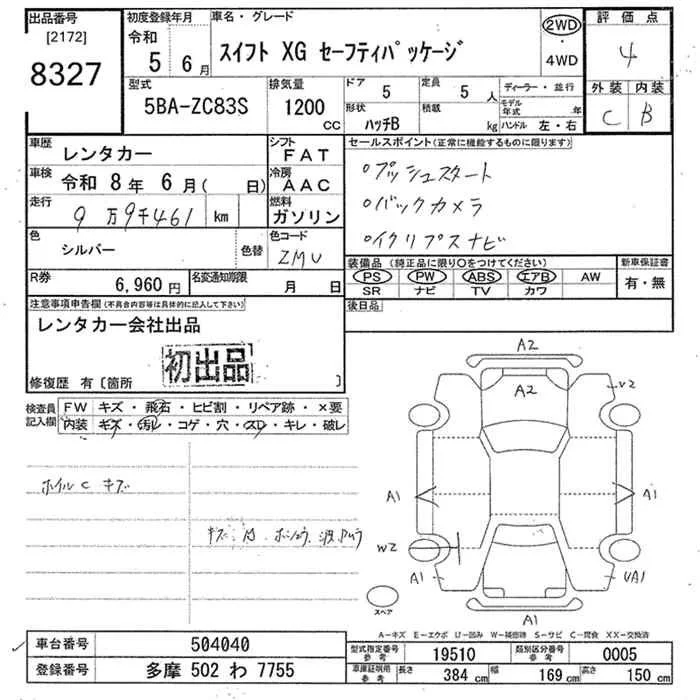 出品番号
[2172]
8327
初度登録年月
令和
5 6月
車名・グレード
スイフト XG セーフティパッケージ
2WD
・
4WD
評価点
4
外装 内装
C B
型式
5BA-ZC83S
排気量
1200
CC
ドア
5
定員
5 人
形状
ハッチB
積載
kg
ディーラー・並行
モデル年式 年
ハンドル 左・右
車歴
レンタカー
シフト
FAT
車検
令和 8年 6月( 日)
冷房
AAC
走行
9万9千461 km
燃料
ガソリン
色
シルバー
色替
色コード
ZMU
R券
6,960円
名変通知期限
月 日
セールスポイント(正常に機能するものに限ります)
○プッシュスタート
○バックカメラ
○イクリプスナビ
装備品(純正品に限り○をつけてください)
PS PW ABS エアB AW
SR ナビ TV カワ
新車保証書
有・無
後日品
注意事項申告欄(不具合内容等は具体的に記入して下さい)
レンタカー会社出品
初出品
修復歴 有〔箇所 〕
検査員
記入欄
FW キズ・飛石・ヒビ割・リペア跡・×要
内装 キズ・汚レ・コゲ・穴・スレ・キレ・破レ
ホイルC キズ
A2
A2
V2
A1
A1
W2
A1
UA1
A1
スペア
A-キズ E-エクボ U-凹み W-補修跡 S-サビ C-腐食 XX-交換済
車台番号
504040
登録番号
多摩 502 わ 7755
型式指定番号
参考
19510
類別区分番号
参考
0005
車庫証明用
参考
長さ
384 cm
幅
169 cm
高さ
150 cm